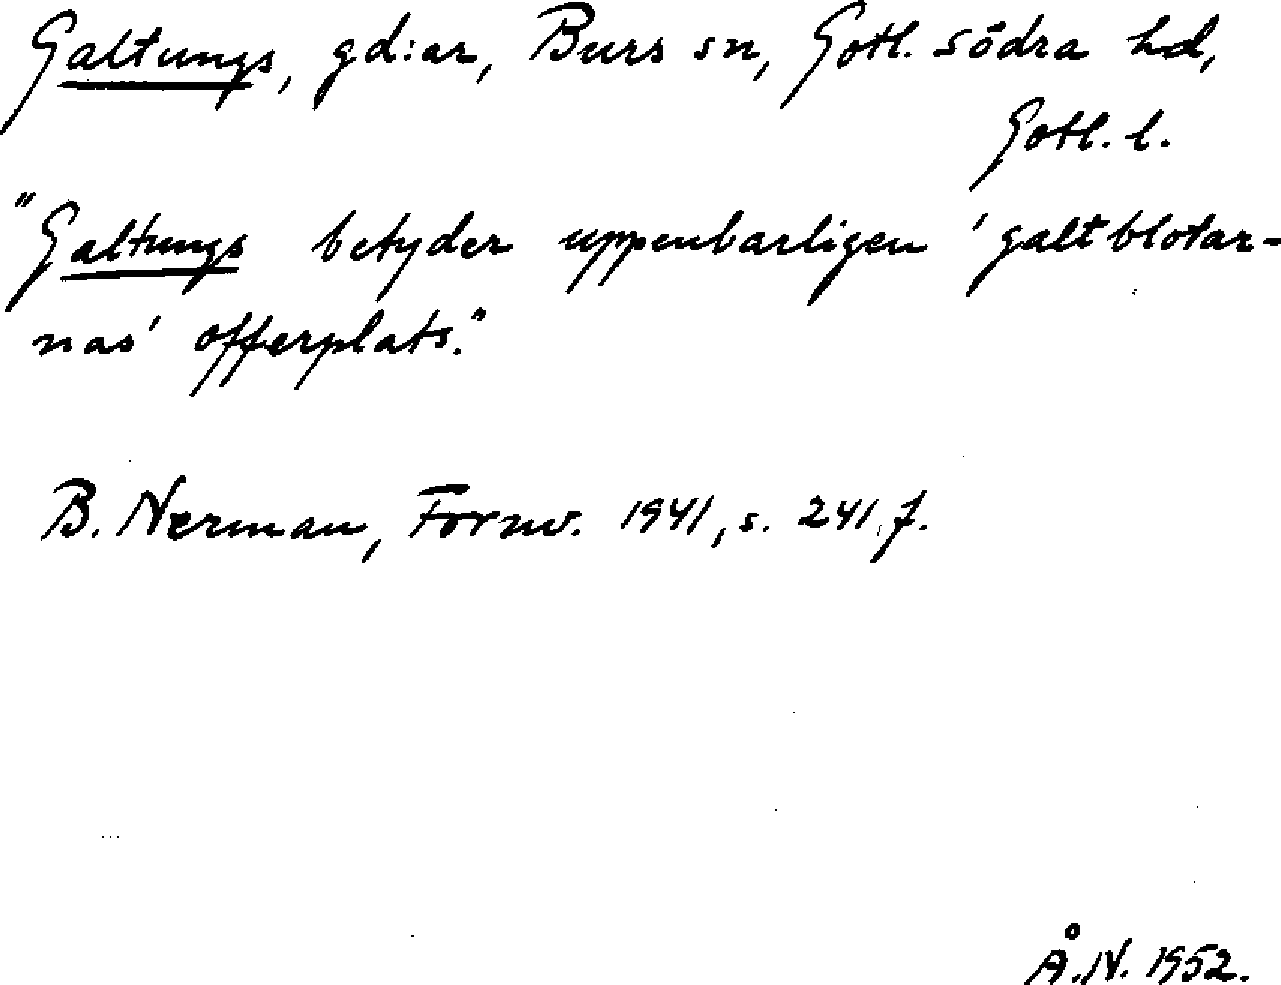 Galtungs, gd:ar, Burs sn, Gotl. södra hd,
Gotl. l.
"Galtungs betyder uppenbarligen 'galtblotar-
nas' offerplats."
B. Nerman, Fornv. 1941, s. 241 f.
Å.N. 1952.